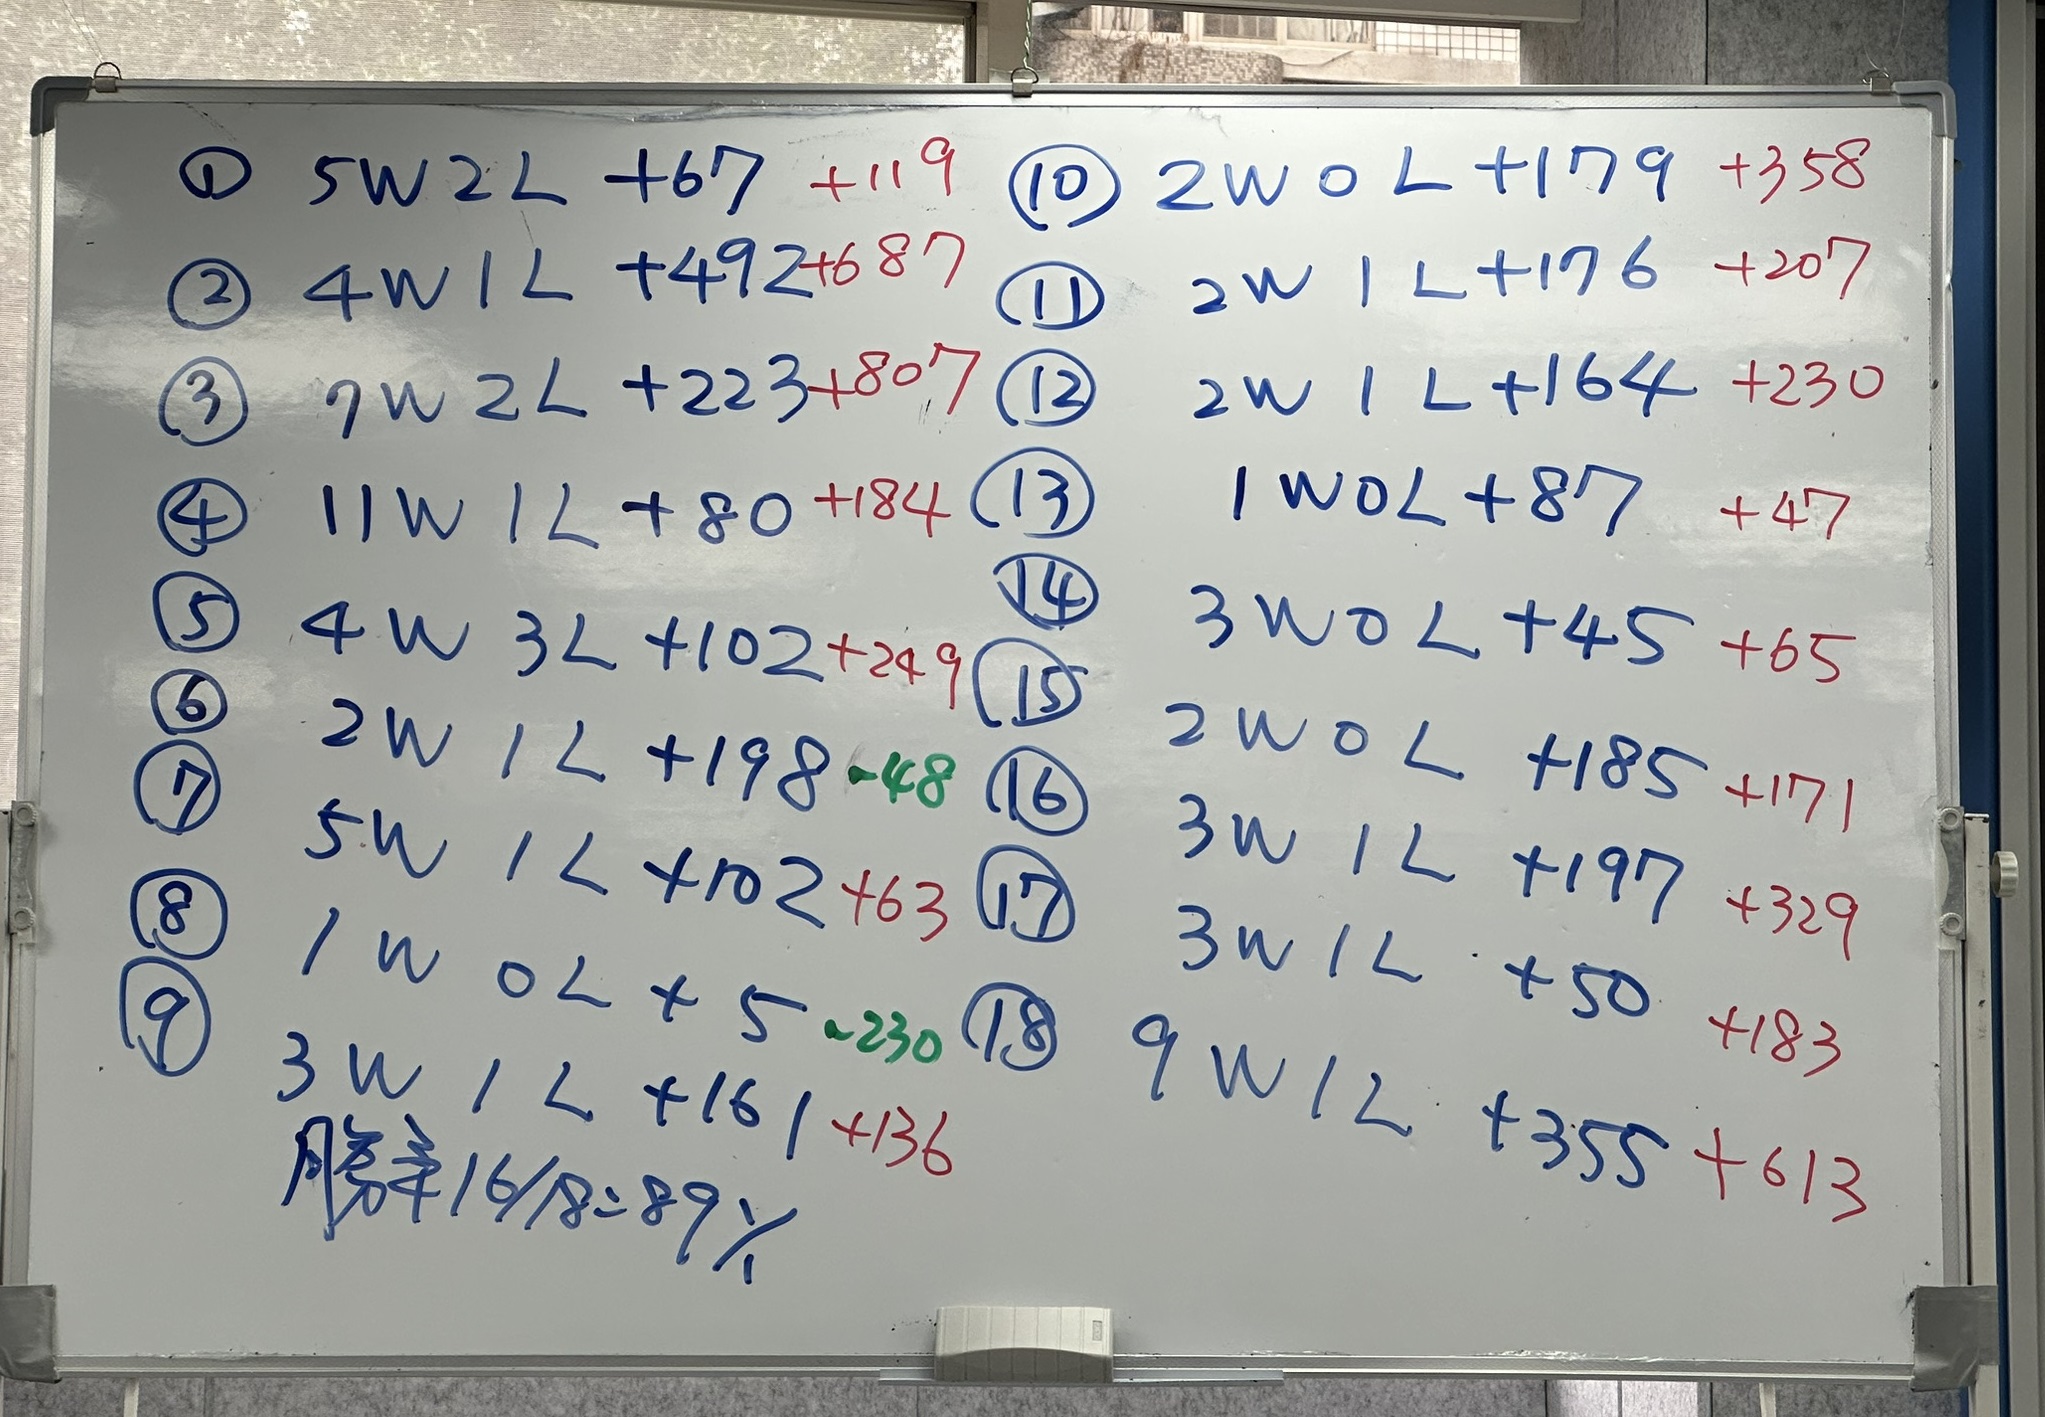 ① 5W2L +67 +119
② 4W1L +492 +687
③ 7W2L +223 +807
④ 11W1L +80 +184
⑤ 4W3L +102 +249
⑥ 2W1L +198 -48
⑦ 5W1L +102 +63
⑧ 1W0L +5 -230
⑨ 3W1L +161 +136
勝率16/18=89%
⑩ 2W0L +179 +358
⑪ 2W1L +176 +207
⑫ 2W1L +164 +230
⑬ 1W0L +87 +47
⑭ 3W0L +45 +65
⑮ 2W0L +185 +171
⑯ 3W1L +197 +329
⑰ 3W1L +50 +183
⑱ 9W1L +355 +613